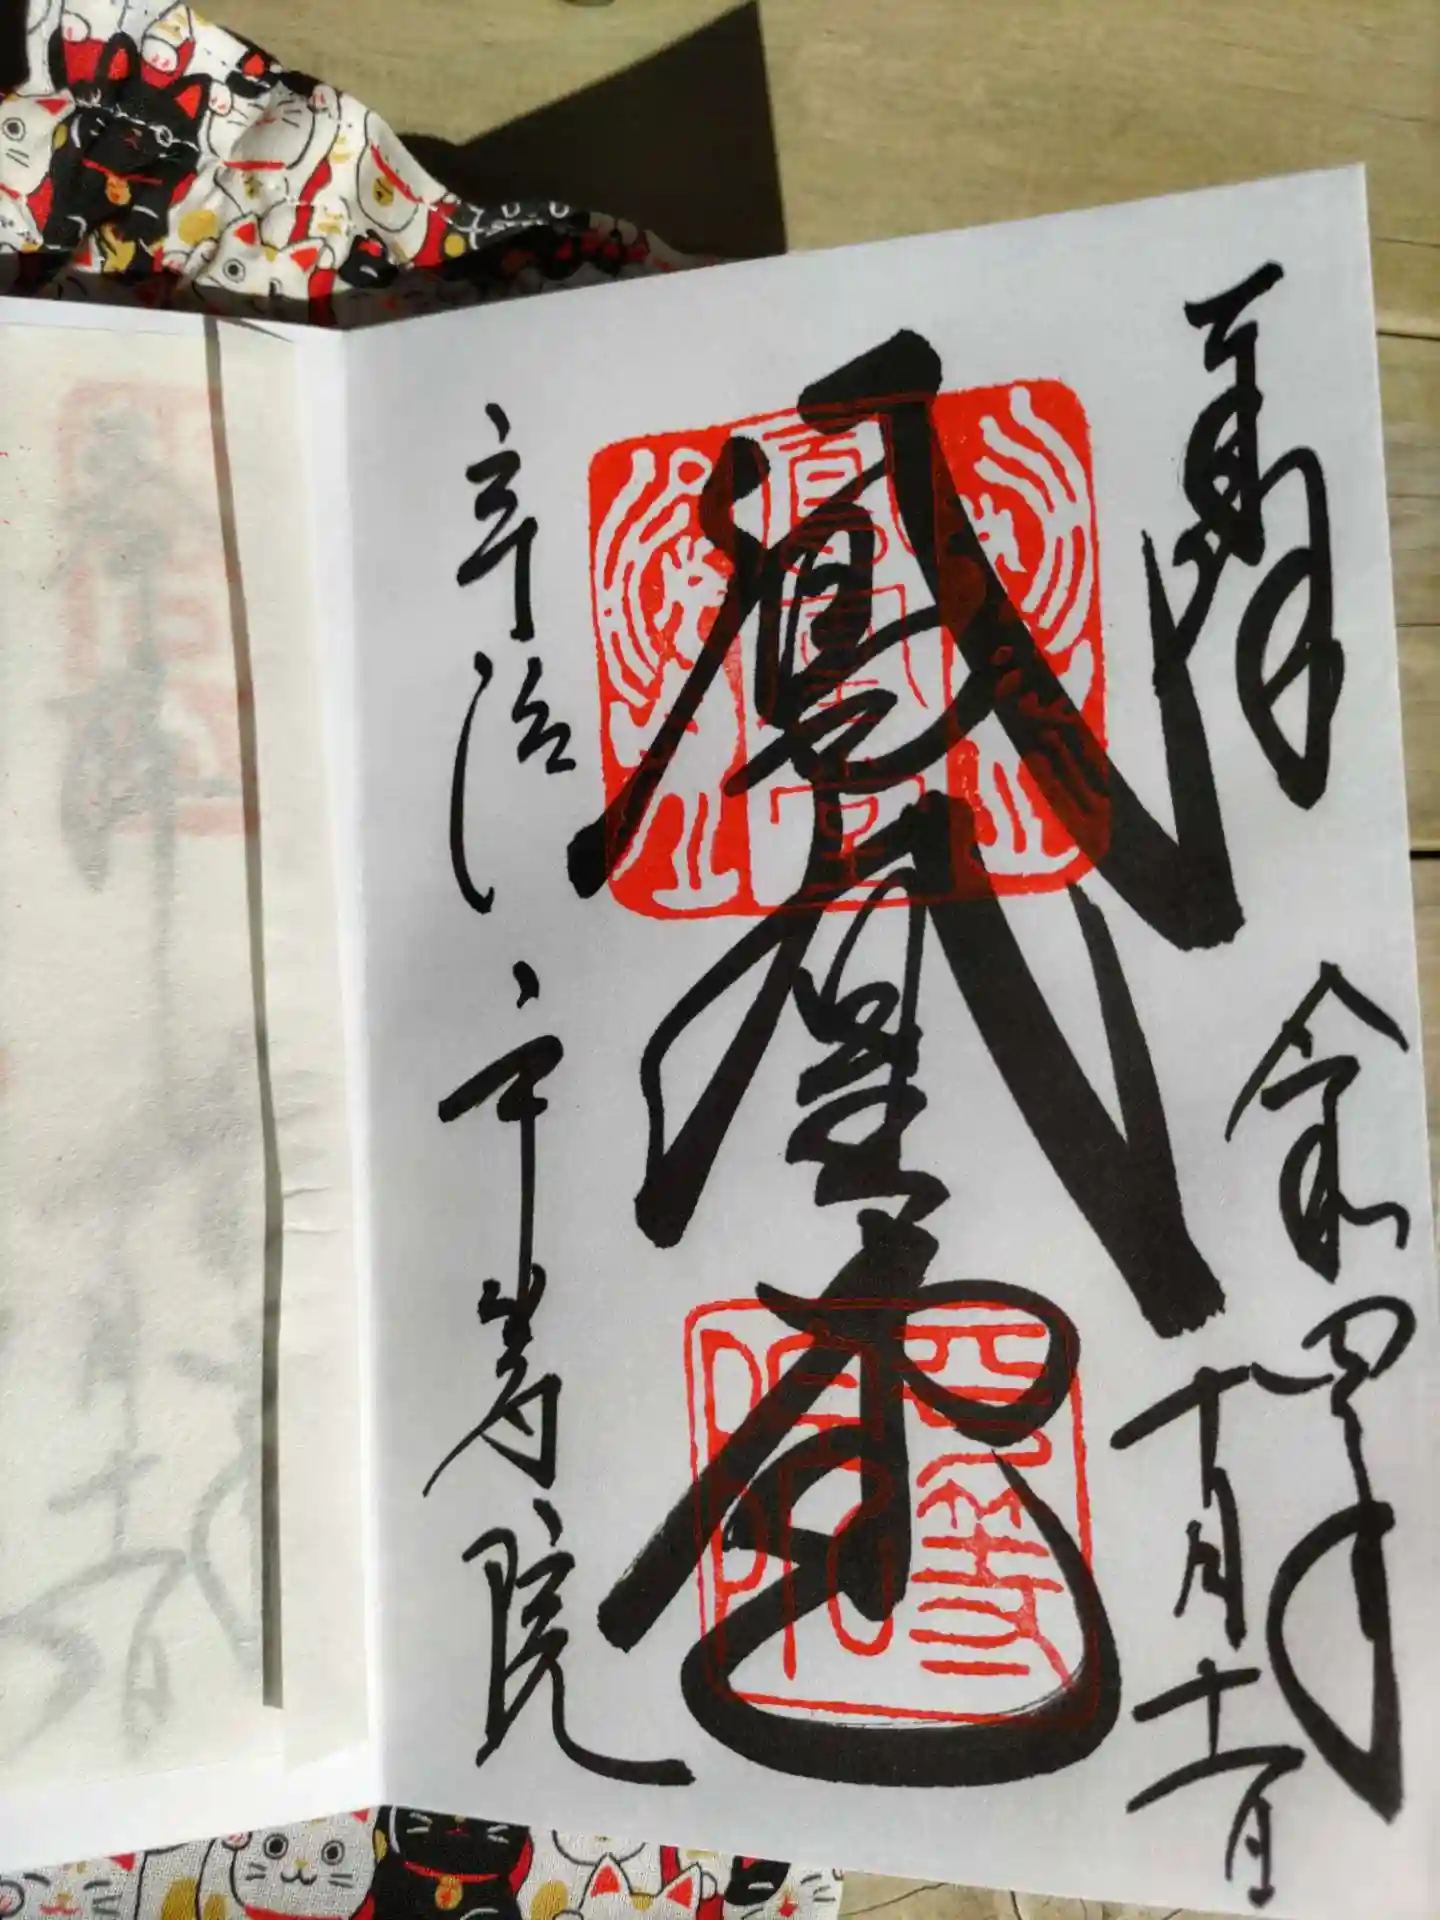 奉拝
令和四年
十月十一日
鳳凰堂
宇治 平等院
平等院印